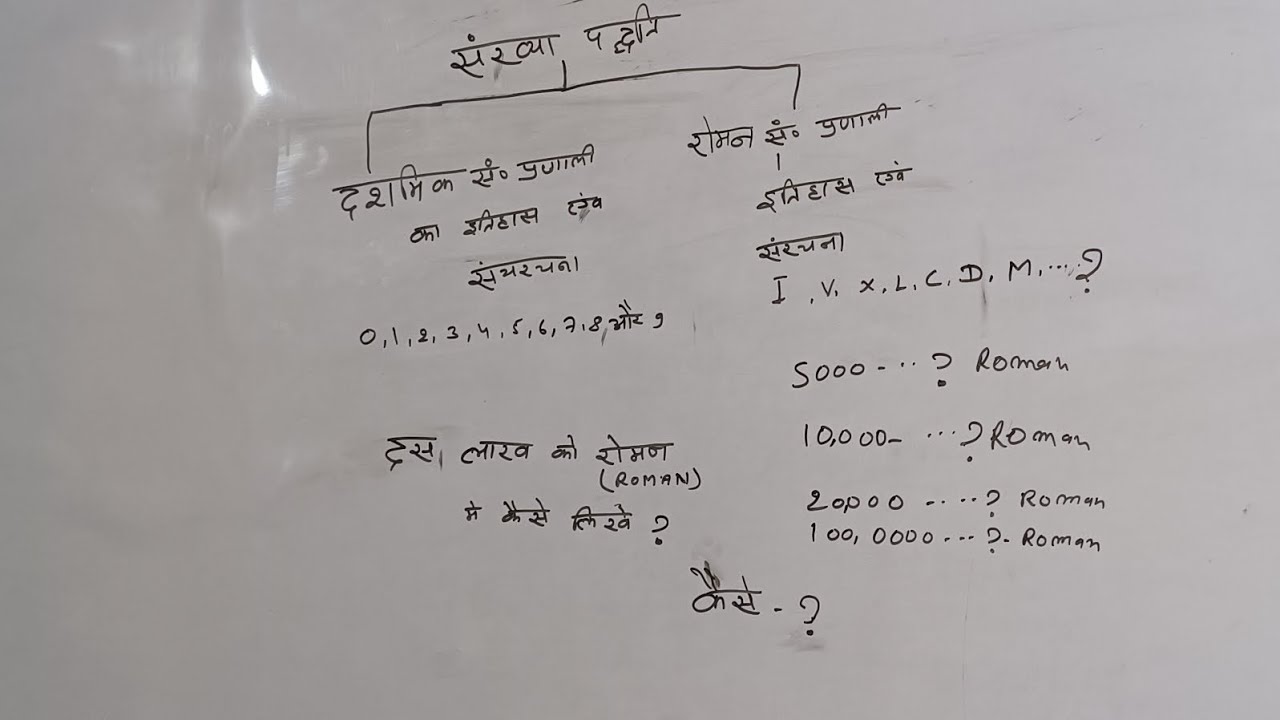 संख्या पद्धति
दशमिक सं० प्रणाली
का इतिहास एंव
संयरचना
0,1,2,3,4,5,6,7,8,और 9
रोमन सं० प्रणाली
इतिहास एंव
संरचना
I, V, X, L, C, D, M, ...?
5000 - ...? Roman
10,000 - ...? ROman
20,000 - ...? Roman
100,0000 ...? - Roman
दस, लाख को रोमन
(ROMAN)
मे कैसे लिखे ?
कैसे - ?